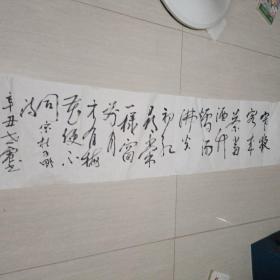 寒夜
客来
茶当
酒竹
炉汤
沸火
初红
寻常
一樣窗
前月
才有梅
花便不
同宋杜耒
诗
辛丑